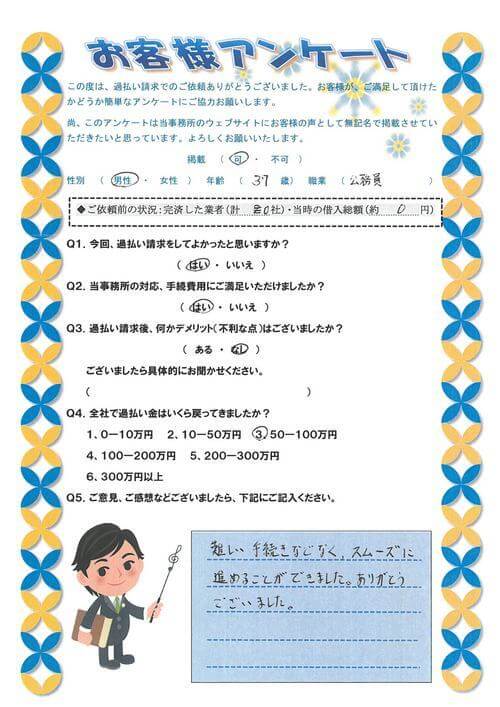 お客様アンケート
この度は、過払い請求でのご依頼ありがとうございました。お客様が、ご満足して頂けた
かどうか簡単なアンケートにご協力お願いします。
尚、このアンケートは当事務所のウェブサイトにお客様の声として無記名で掲載させてい
ただきたいと思っています。よろしくお願いいたします。
掲載 （ 可 ・ 不可 ）
性別 （ 男性 ・ 女性 ） 年齢 （ 37 歳） 職業 （ 公務員 ）
◆ご依頼前の状況：完済した業者（計 社）・当時の借入総額（約 0 円）
Q1. 今回、過払い請求をしてよかったと思いますか？
（ はい ・ いいえ ）
Q2. 当事務所の対応、手続費用にご満足いただけましたか？
（ はい ・ いいえ ）
Q3. 過払い請求後、何かデメリット（不利な点）はございましたか？
（ ある ・ なし ）
ございましたら具体的にお聞かせください。
（ ）
Q4. 全社で過払い金はいくら戻ってきましたか？
1、0－10万円 2、10－50万円 3、50－100万円
4、100－200万円 5、200－300万円
6、300万円以上
Q5. ご意見、ご感想などございましたら、下記にご記入ください。
難しい手続きなどなく、スムーズに
進めることができました。ありがとう
ございました。